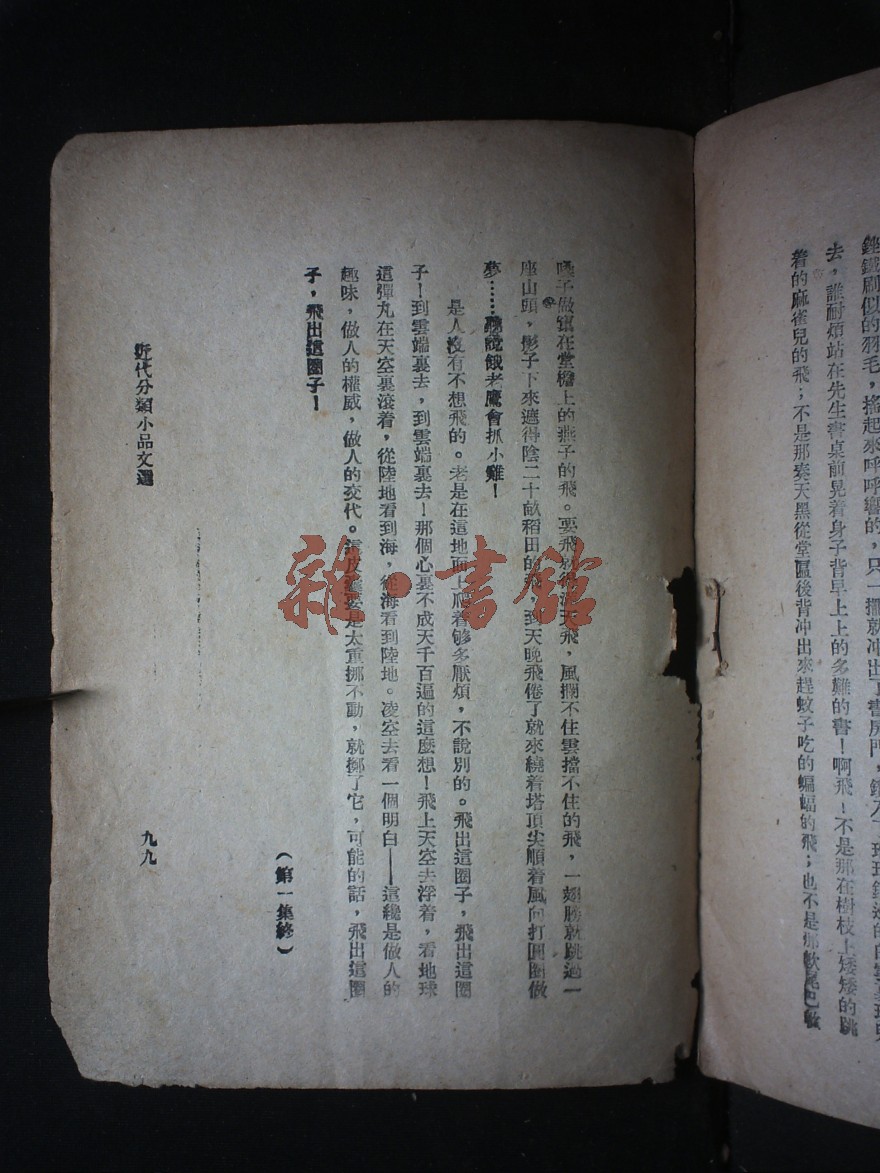 鏗鐵刷似的羽毛，搖起來呼呼響的，只一擺就冲出了書房門，鑽入了
去，誰耐煩站在先生書桌前晃着身子背早上上的多難的書！啊飛！不是那在樹枝上矮矮的跳
着的麻雀兒的飛；不是那湊天黑從堂匾後背冲出來趕蚊子吃的蝙蝠的飛；也不是那軟尾巴軟
嗓子做窠在堂檐上的燕子的飛。要飛就得滿天飛，風攔不住雲擋不住的飛，一翅膀就跳過一
座山頭，影子下來遮得陰二十畝稻田的飛，到天晚飛倦了就來繞着塔頂尖順着風向打圓圈做
夢……聽說餓老鷹會抓小雞！
是人沒有不想飛的。老是在這地面上爬着够多厭煩，不說別的。飛出這圈子，飛出這圈
子！到雲端裏去，到雲端裏去！那個心裏不成天千百遍的這麼想！飛上天空去浮着，看地球
這彈丸在天空裏滾着，從陸地看到海，從海看到陸地。凌空去看一個明白——這纔是做人的
趣味，做人的權威，做人的交代。這皮囊要是太重挪不動，就擲了它，可能的話，飛出這圈
子，飛出這圈子！
（第一集終）
近代分類小品文選
九九
雜·書館